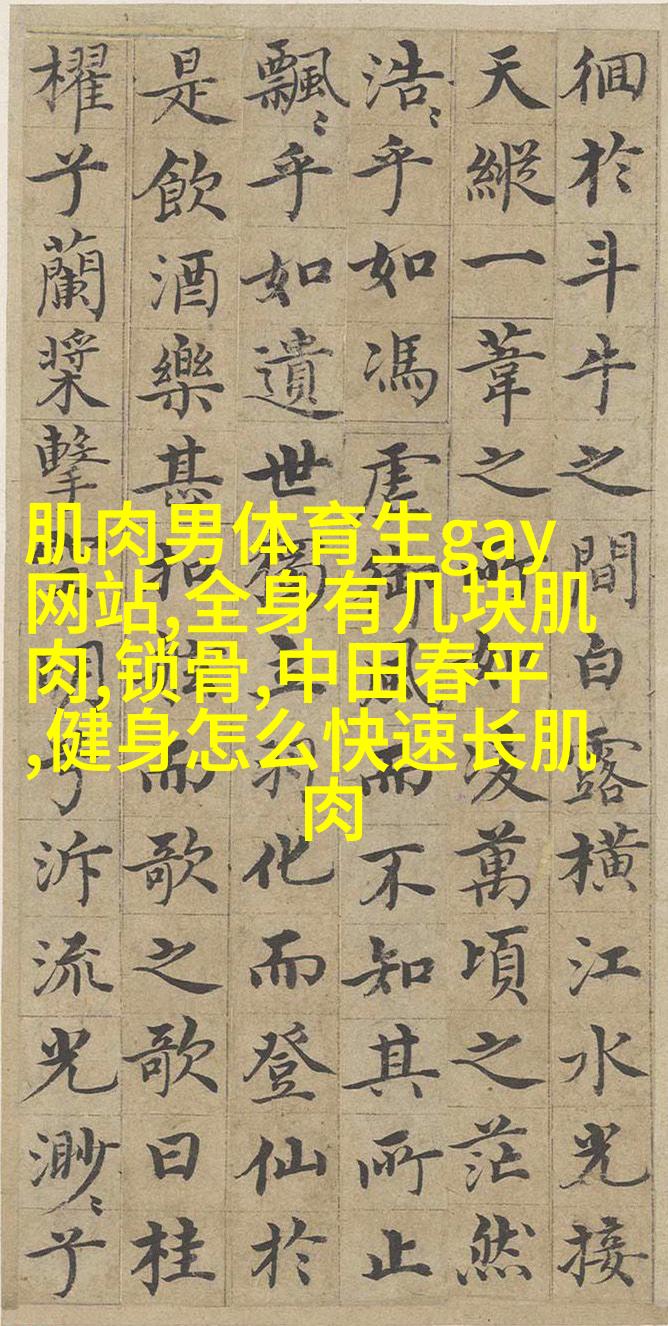 徊於斗牛之間白露橫江水光接
天縱一葦之所如凌萬頃之茫然
浩〻乎如馮虛御風而不知其所止
飄〻乎如遺世獨立羽化而登仙於
是飲酒樂甚扣舷而歌之歌曰桂
櫂兮蘭槳擊空明兮泝流光渺〻兮
肌肉男体育生gay
网站,全身有几块肌
肉,锁骨,中田春平
,健身怎么快速长肌
肉